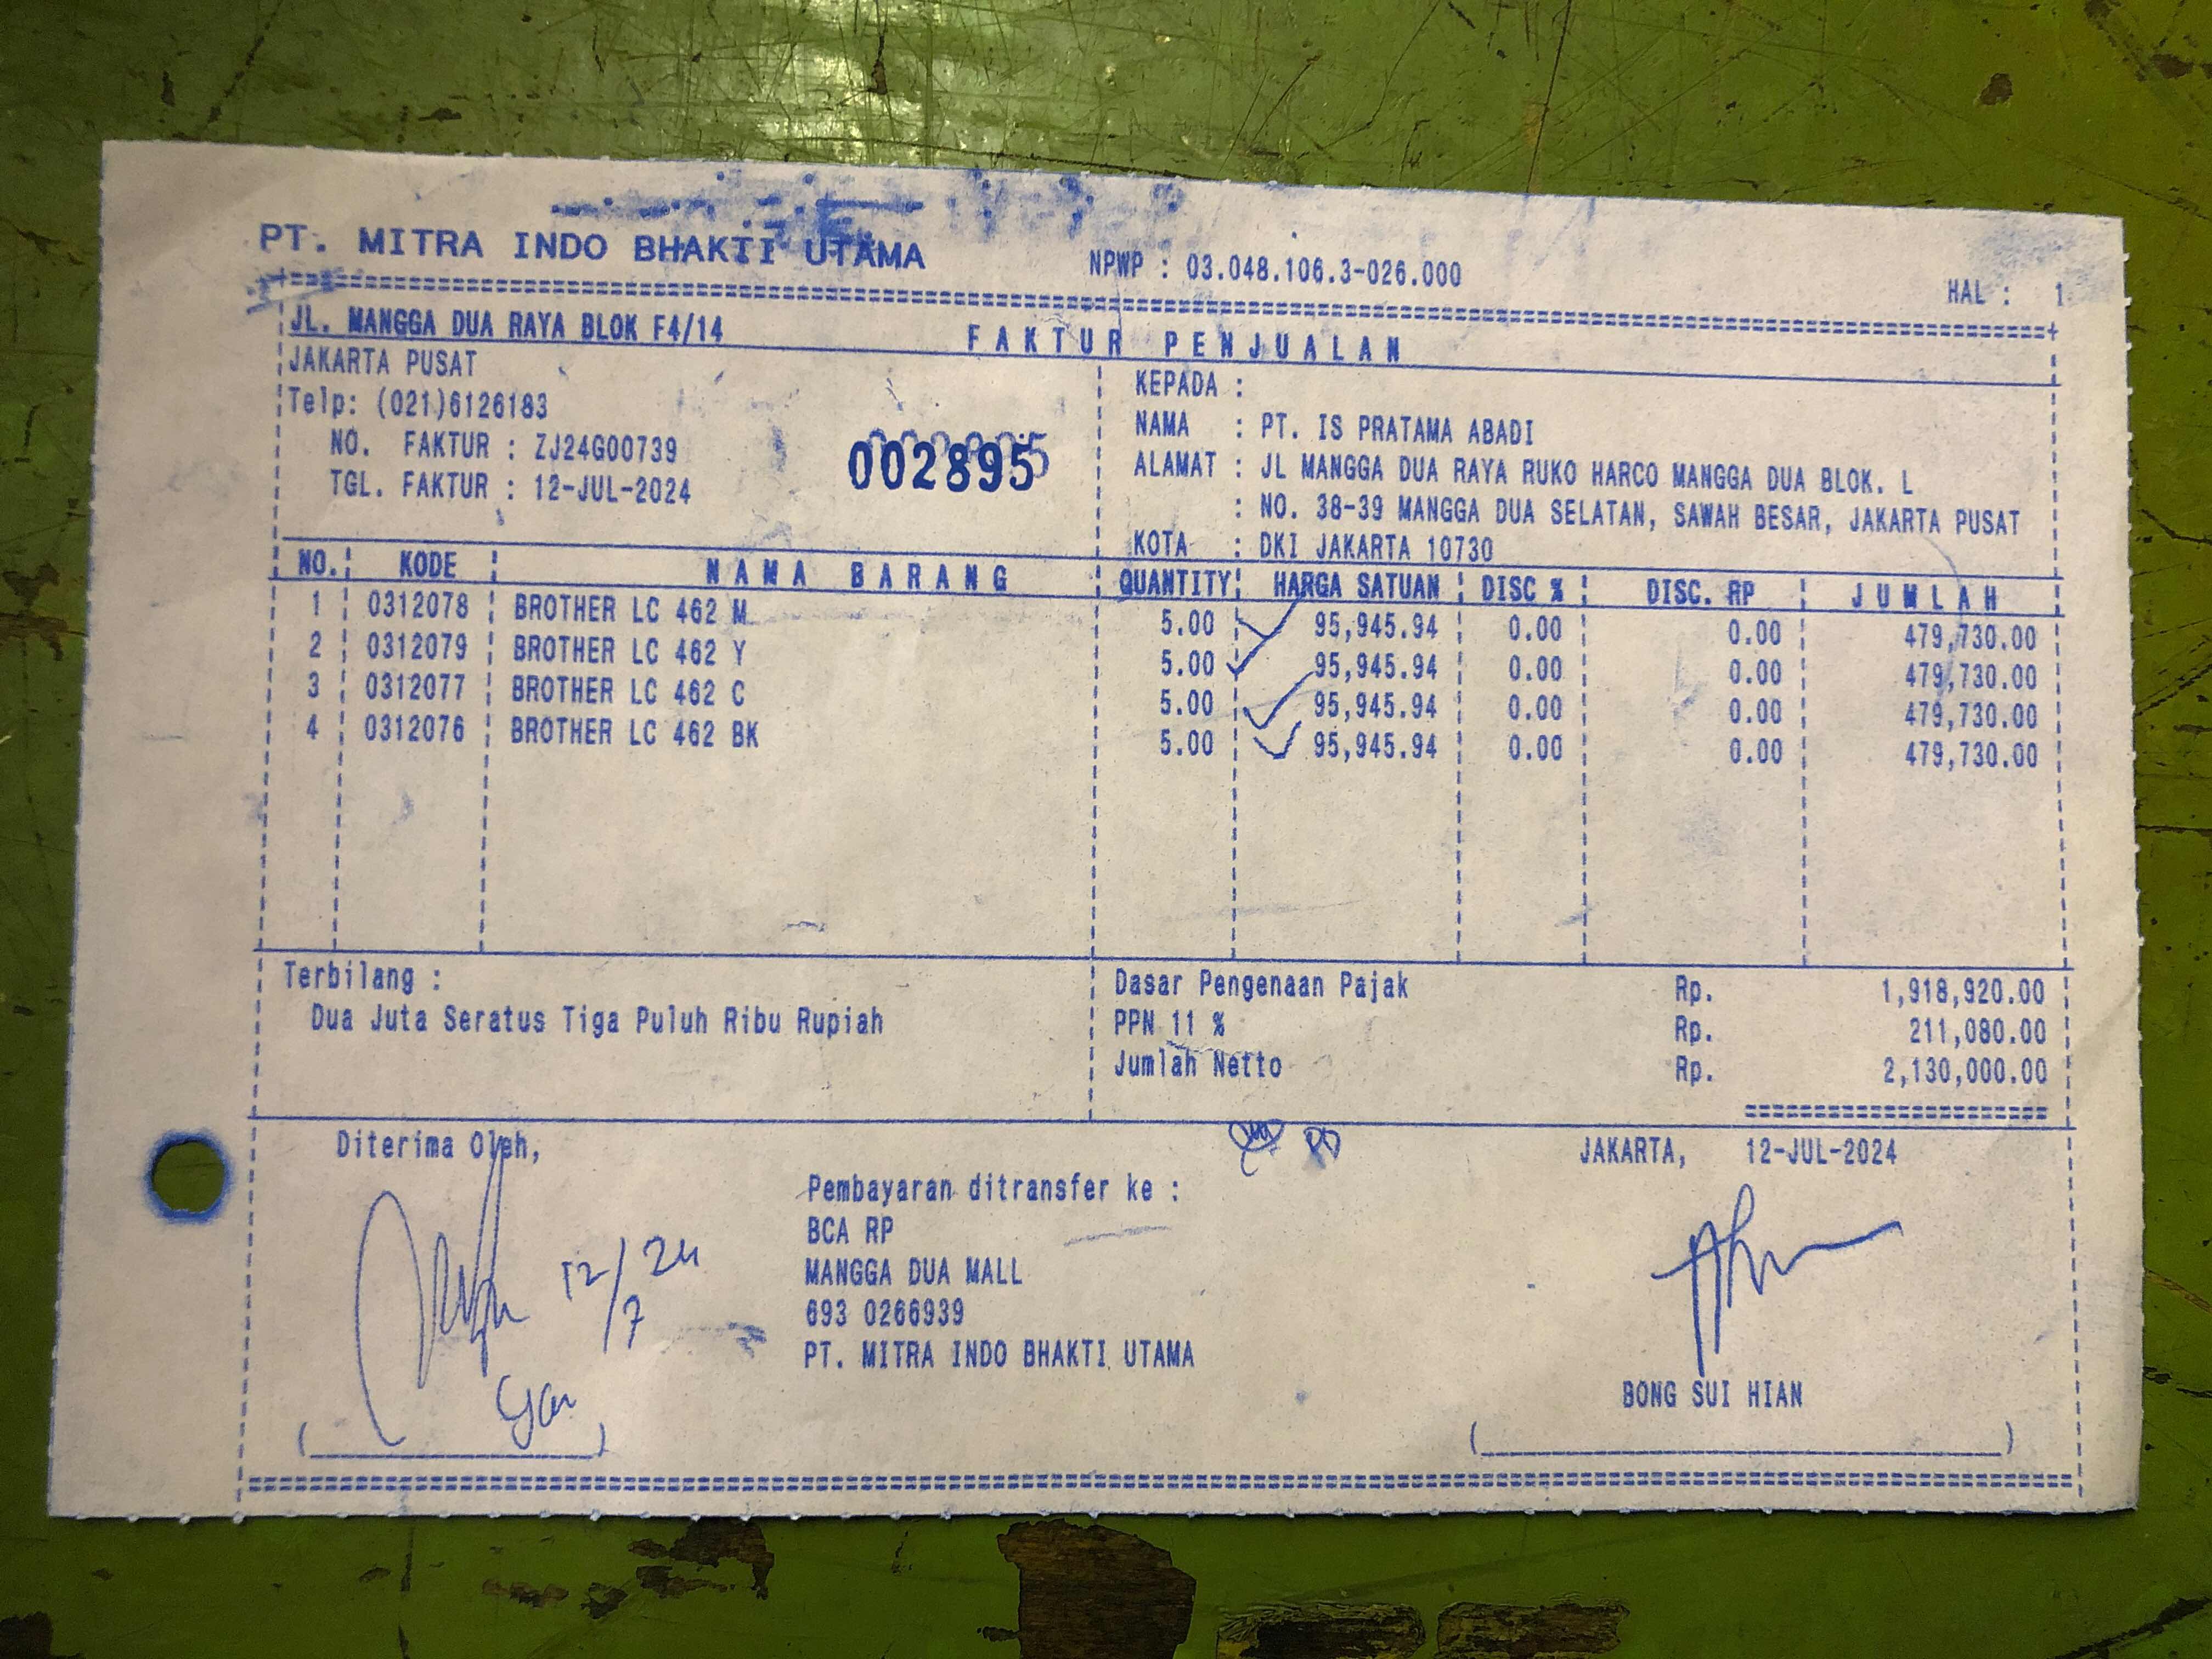 PT. MITRA INDO BHAKTI UTAMA
NPWP : 03.048.106.3-026.000
HAL : 1
JL. MANGGA DUA RAYA BLOK F4/14
FAKTUR PENJUALAN
JAKARTA PUSAT
Telp: (021)6126183
NO. FAKTUR : ZJ24G00739
TGL. FAKTUR : 12-JUL-2024
002895
KEPADA :
NAMA : PT. IS PRATAMA ABADI
ALAMAT : JL MANGGA DUA RAYA RUKO HARCO MANGGA DUA BLOK. L
: NO. 38-39 MANGGA DUA SELATAN, SAWAH BESAR, JAKARTA PUSAT
KOTA : DKI JAKARTA 10730
NO. KODE NAMA BARANG QUANTITY HARGA SATUAN DISC % DISC. RP JUMLAH
1 0312078 BROTHER LC 462 M 5.00 95,945.94 0.00 0.00 479,730.00
2 0312079 BROTHER LC 462 Y 5.00 95,945.94 0.00 0.00 479,730.00
3 0312077 BROTHER LC 462 C 5.00 95,945.94 0.00 0.00 479,730.00
4 0312076 BROTHER LC 462 BK 5.00 95,945.94 0.00 0.00 479,730.00
Terbilang :
Dua Juta Seratus Tiga Puluh Ribu Rupiah
Dasar Pengenaan Pajak Rp. 1,918,920.00
PPN 11 % Rp. 211,080.00
Jumlah Netto Rp. 2,130,000.00
Diterima Oleh,
12/7 24
Pembayaran ditransfer ke :
BCA RP
MANGGA DUA MALL
693 0266939
PT. MITRA INDO BHAKTI UTAMA
JAKARTA, 12-JUL-2024
BONG SUI HIAN